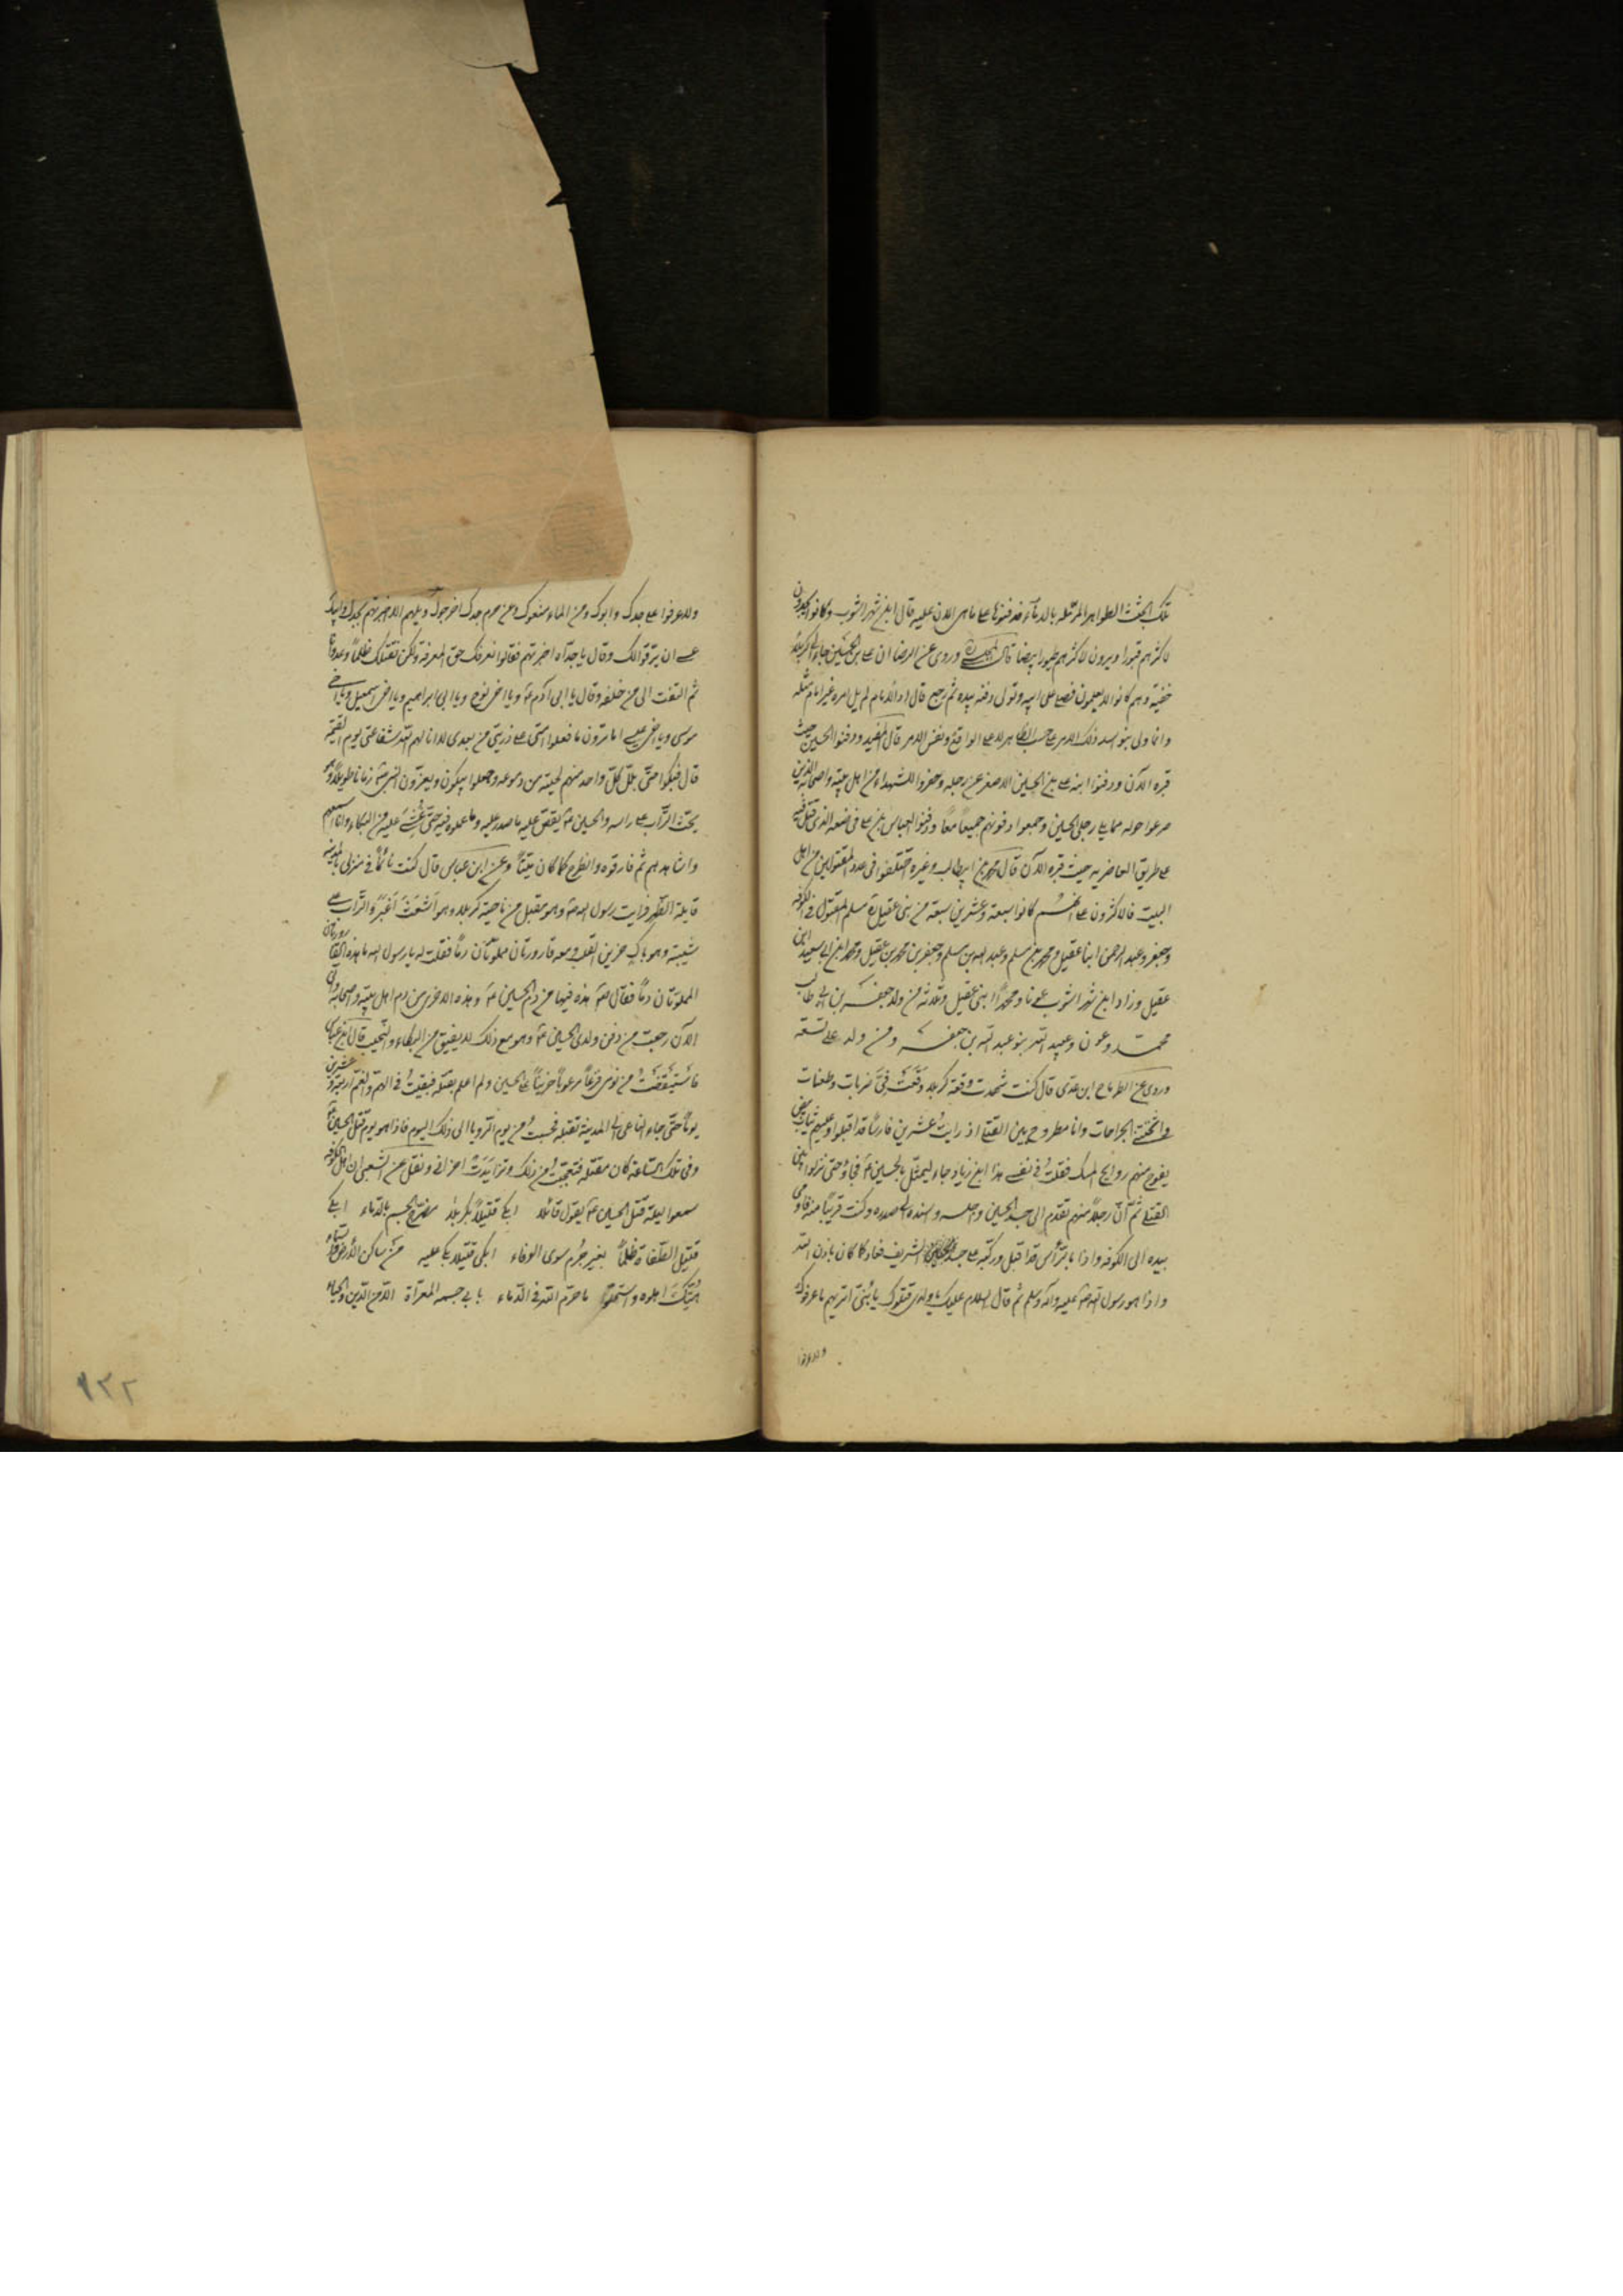 تلك الجثث الطواهر المرمّله بالدماء فدفنوها على ما هى الان عليه قال ابن شهراشوب وكانوا يجدون
لاكثرهم قبورا ويرون لاكثرهم طيورا بيضا قال وروى عن الرضا ان على بن الحسين جاء الى كربلا
خفية وهم كانوا لا يعلمون فصلى على ابيه وتولى دفنه بيده ثم رجع قال اذ الامام لم يل امره غير امام مثله
وانما ولى بنو اسد ذلك الامر على حسب الظاهر لا على الواقع ونفس الامر قال المفيد ودفنوا الحسين حيث
قبره الآن ودفنوا ابنه على بن الحسين الاصغر عن رجله وحفروا للشهداء من اهل بيته واصحابه الذين
صرعوا حوله مما يلى رجلى الحسين وجمعوا دفنوهم جميعاً معاً ودفنوا العباس بن على فى موضعه الذى قتل فيه
على طريق الغاضريه حيث قبره الآن قال محمد بن ابيطالب وغيره اختلفوا فى عدد المقتولين من اهل
البيت فالاكثرون على انهم كانوا سبعة وعشرين سبعة من بنى عقيل مسلم المقتول فى الكوفه
وجعفر وعبد الرحمن ابنا عقيل ومحمد بن مسلم وعبد الله بن مسلم وجعفر بن محمد بن عقيل ومحمد ابن ابى سعيد ابن
عقيل وزاد ابن شهراشوب عونا ومحمداً ابنى عقيل وثلاثه من ولد جعفر بن ابى طالب
محمد وعون وعبيد الله بنو عبد الله بن جعفر ومن ولد على تسعه
وروى عن الطرماح ابن عدى قال كنت شهدت وقعة كربلا وَقَعَتْ فِىَّ ضربات وطعنات
واثخنتنى الجراحات وانا مطروح بين القتلى اذ رايت عشرين فارسًا قد اقبلوا وعليهم ثياب بيض
يفوح منهم روايح المسك فقلت فى نفسى هذا ابن زياد جاء ليمثّل بالحسين فجاؤا حتى نزلوا بين
القتلى ثم انّ رجلاً منهم تقدم الى جسد الحسين واجلسه واسنده الى صدره وكنت قريباً منه فاومى
بيده الى الكوفه واذا بالرأس قد اقبل وركبّه على جسد الشريف فعاد كما كان باذن الله
واذا هو رسول الله صلى الله عليه وآله وسلم ثم قال السلام عليك يا ولدى قتلوك يا بُنىّ اتريهم ما عرفوك
ولاعرفوا
ولا عرفوا على جدك وابوك ومن الماء منعوك ومن حرم جدك اخرجوك ويلهم الا خبرتهم بجدك وابيك
عسى ان يرقّوا لك وقال يا جدّاه اخبرتهم فقالوا نعرفك حق المعرفة ولكن نقتلك ظلماً وعدوانا
ثم التفت الى من خلفه وقال يا ابى آدم ويا اخى نوح ويا ابى ابراهيم ويا اخى اسمعيل ويا اخى
موسى ويا اخى عيسى اما ترون ما فعلوا امتى على ذريتى من بعدى لا انا لهم الله شفاعتى يوم القيمة
قال فبكوا حتّى بلّ كلّ واحد منهم لحيته من دموعه وجعلوا يبكون ويعزّون النبى زمانا طويلاً وهو
يحثّ التراب على راسه والحسين يقصّ عليه ما صدر عليه وما عملوه فيه حتى غشى عليه من البكاء وانا اسمعهم
واشاهدهم ثم فارقوه وانطرح كما كان ميّتاً وعن ابن عباس قال كنت نائماً فى منزلى بالمدينه
قايلة الظهر فرايت رسول الله وهو مقبل من ناحية كربلا وهو اَشعَث اَغبَر والتراب على
شيبته وهو باكٍ حزين القلب ومعه قارورتان مملوّتان دماً فقلت له يا رسول الله ما هذه القارورتان
المملوّتان دماً فقال هذه فيها من دم الحسين وهذه الاخرى من دم اهل بيته واصحابه وانى
الآن رجعت من دفن ولدى الحسين وهو مع ذلك لا يفيق من البكاء والنحيب قال ابن عباس
فاستيقظتُ من نومى فزعاً مرعوباً حزيناً على الحسين ولم اعلم بقتله فبقيت فى الهمّ والغمّ اربعة وعشرين
يوماً حتى جاء الناعى الى المدينة بقتله فحسبتُ من يوم الرويا الى ذلك اليوم فاذا هو يوم قتل الحسين
وفى تلك الساعة كان مقتله فتعجبتُ من ذلك وتزايَدَتْ احزانى ونقل عن الشعبى ان اهل الكوفه
سمعوا ليلة قتل الحسين يقول قائلا ابكى قتيلاً بكربلا مضرّج الجسم بالدماء ابكى
قتيل الطغاة ظلماً بغير جُرم سوى الوفاء ابكى قتيلا بكى عليه مَن ساكن الأرض والسماء
هُتِكَ اهلوه واستحلّوا ما حرّم الله فى الدّماء يا بى جسمه المعرّاة الا من الدّين والحياء
١٣٢